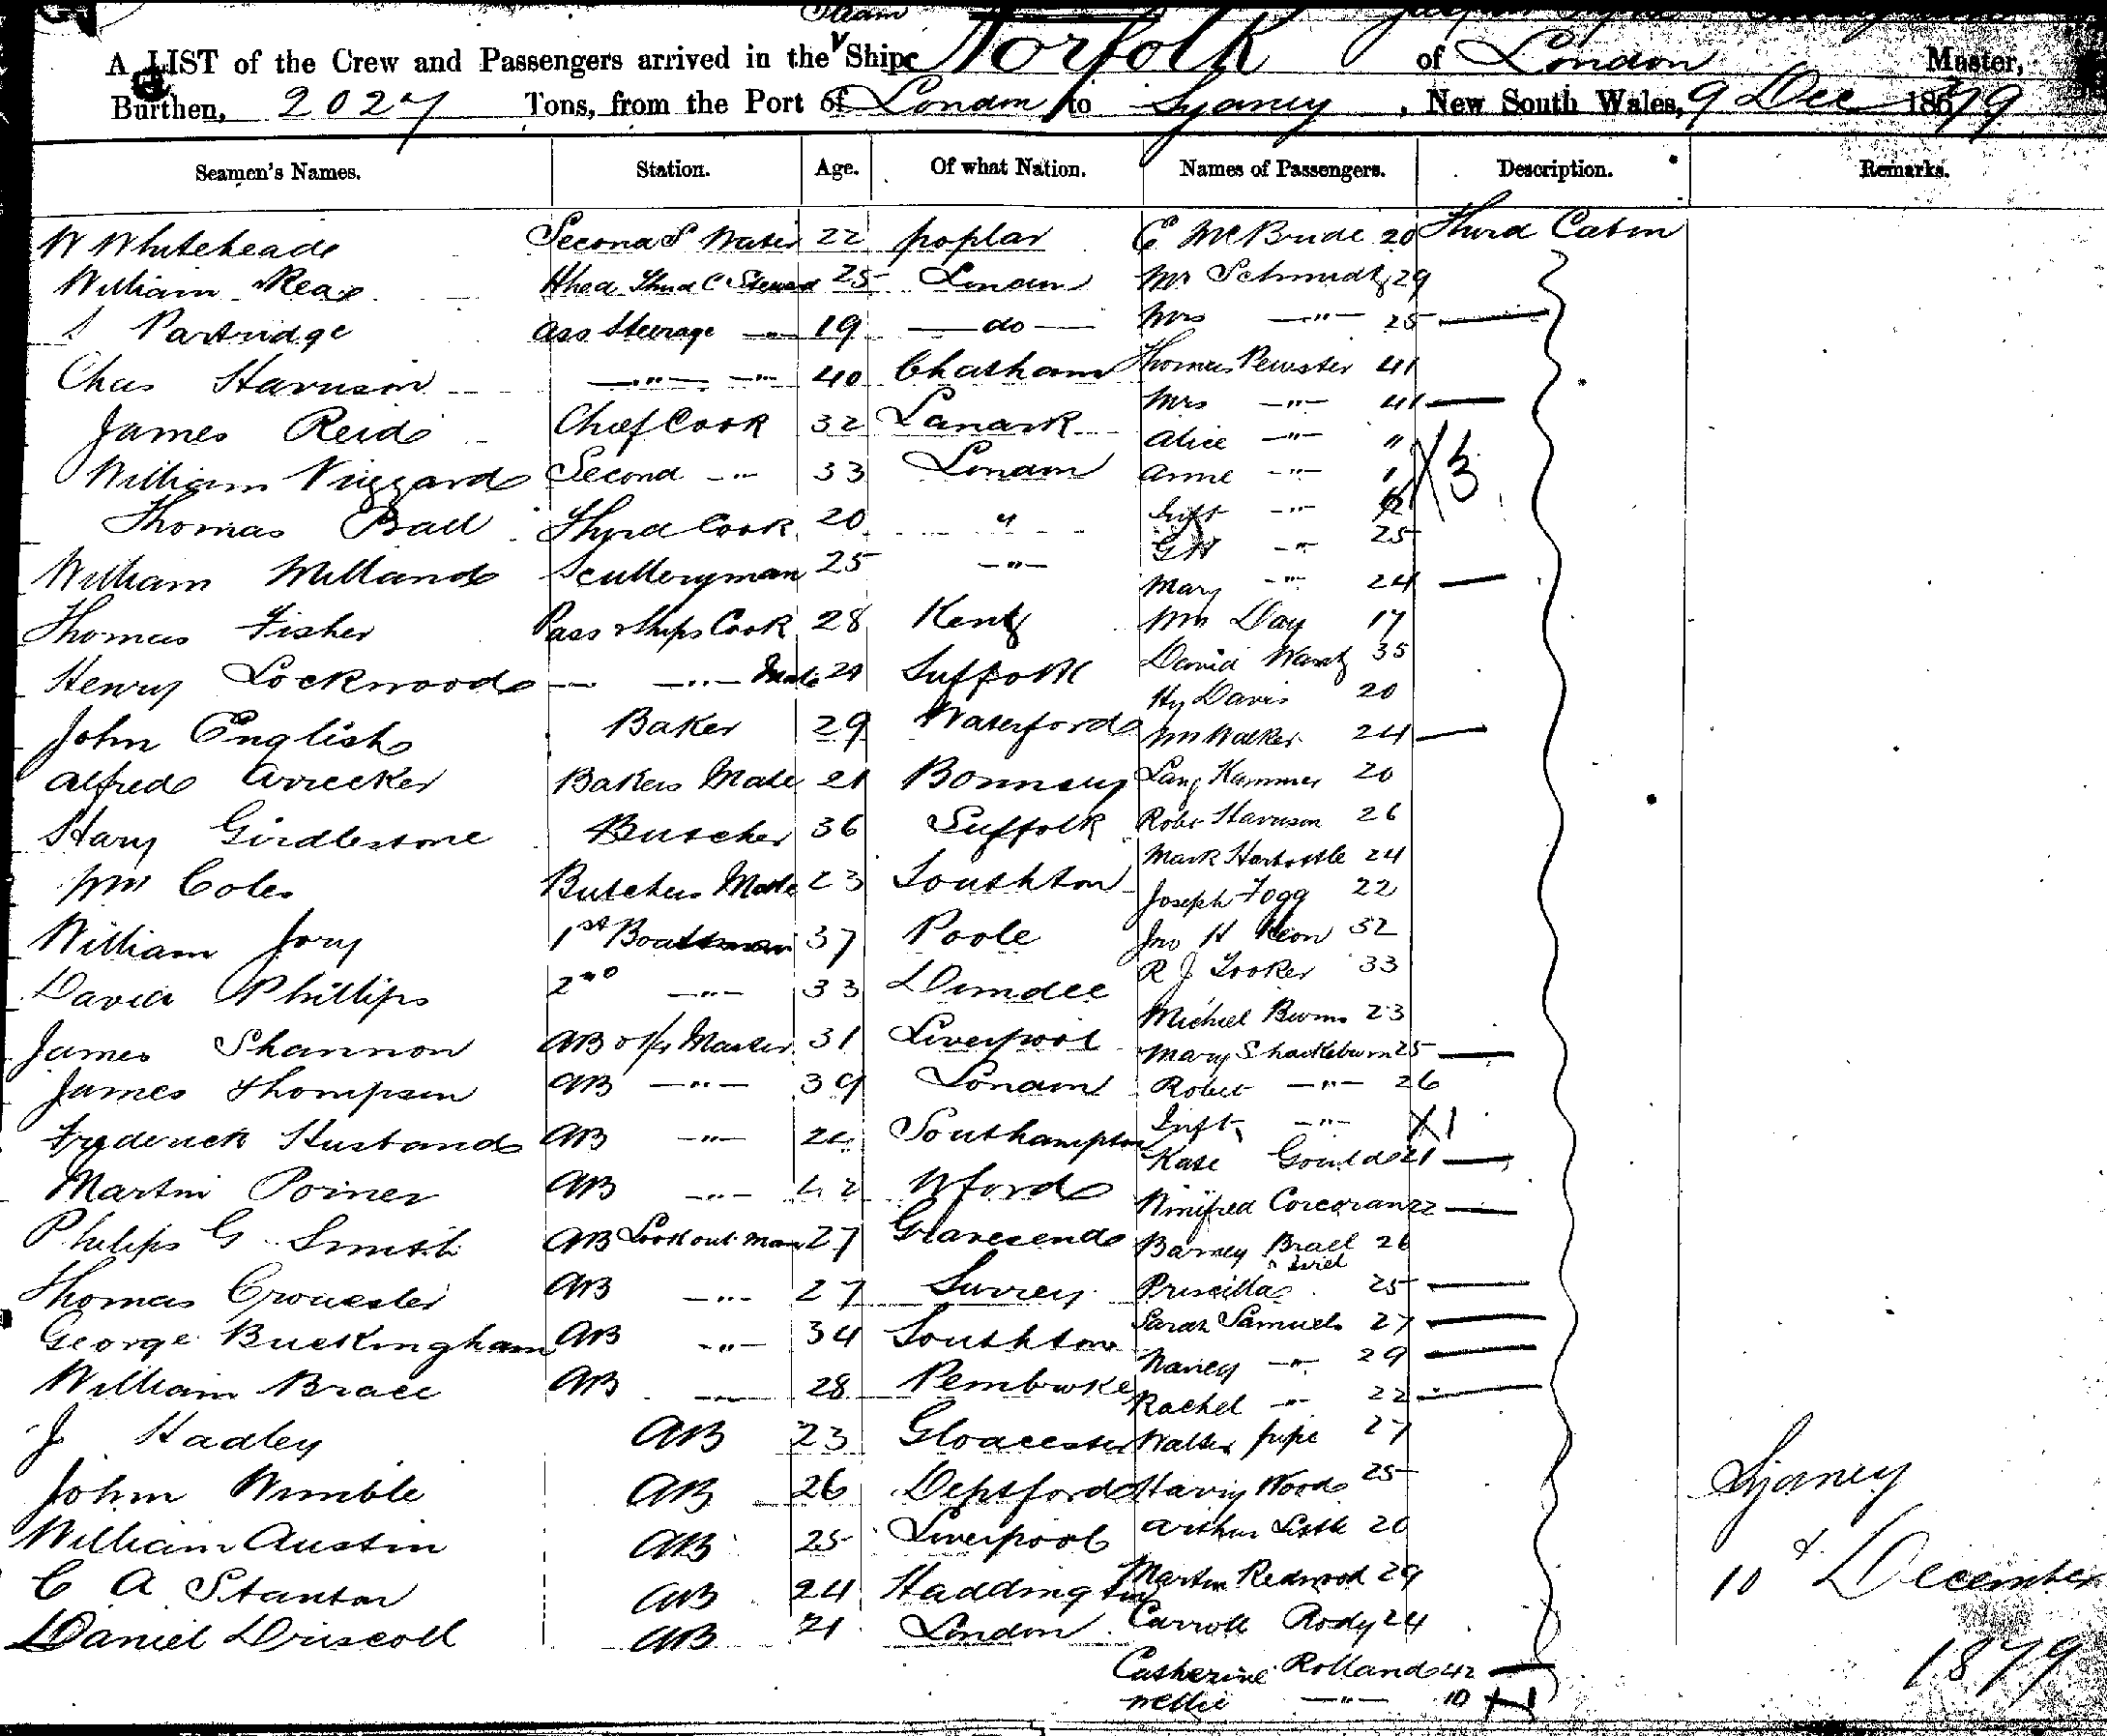 Steam
A LIST of the Crew and Passengers arrived in the Ship Norfolk of London Master,
Burthen, 2027 Tons, from the Port of London to Sydney, New South Wales, 9 Dec 1879
Seamen's Names. Station. Age. Of what Nation. Names of Passengers. Description. Remarks.
W Whitehead Second S Waiter 22 poplar E McBride 20 Third Cabin
William Head Third C Steward 25 London Mr Schmidt 29
S Partridge Ass Steerage —"— 19 —do— Mrs —"— 25 —
Chas Harrison —"— —"— 40 Chatham Thomas 41
Mrs —"— 41 —
James Reid Chief Cook 32 Lanark Alice —"— "
William Vizzard Second —"— 33 London Anne —"— X3
Thomas Ball Third Cook 20 " Inft —"—
William Milland Sculleryman 25 —"— GH —"— 25
Mary —"— 24 —
Thomas Fisher Pass & Ships Cook 28 Kent Wm Day 17
Henry Lockwood — —"— Mate Suffolk David 35
Hy Davis 20
John English Baker 29 Waterford Wm Walker 24 —
Alfred Bakers Mate 21 Lang Hammer 20
Harry Girdlestone Butcher 36 Suffolk Robt Harrison 26
Mark Harbottle 24
Wm Coles Butchers Mate 23 Southton Joseph Fogg 22
William Jory 1st Boatsman 37 Poole Jno H Keon 32
David Phillips 2nd —"— 33 Dundee R J Tooker 33
Michael Burns 23
James Shannon AB & Qr Master 31 Liverpool Mary Shackleburn 25 —
James Thompson AB —"— 39 London Robert —"— 26
Frederick Husband AB —"— Southampton Inft —"— X1
Kate Gould 21 —
Martin Poiner AB —"— 42 Winifred Corcoran 22 —
Philips G Smith AB Lookout man 27 Gravesend Barney Brael 26
Thomas AB —"— 27 Surrey Priscilla 25 —
George Buckingham AB —"— 34 Southton Sarah Samuels 27 —
Nancy —"— 29 —
William Brace AB — 28 Pembroke Rachel —"— 22 —
J Hadley AB 23 Gloacester Walter pope 27
John Wimble AB 26 Deptford Harry Wood 25 Sydney
William Austin AB 25 Liverpool Arthur Little 20
C A Stanton AB 24 Haddington Martin Redwood 29 10th December
Daniel Driscoll AB 21 London Carroll Rody 24
Catherine Rolland 42 — 1879
Nellie —"— 10 X1